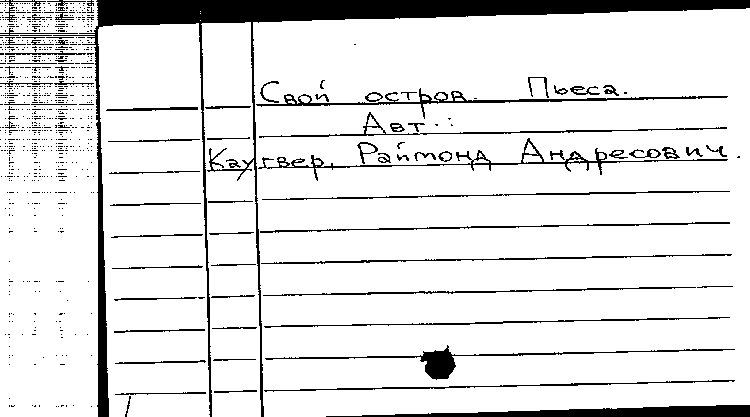 Свой остров. Пьеса.
Авт.:
Каугвер, Раймонд Андресович.